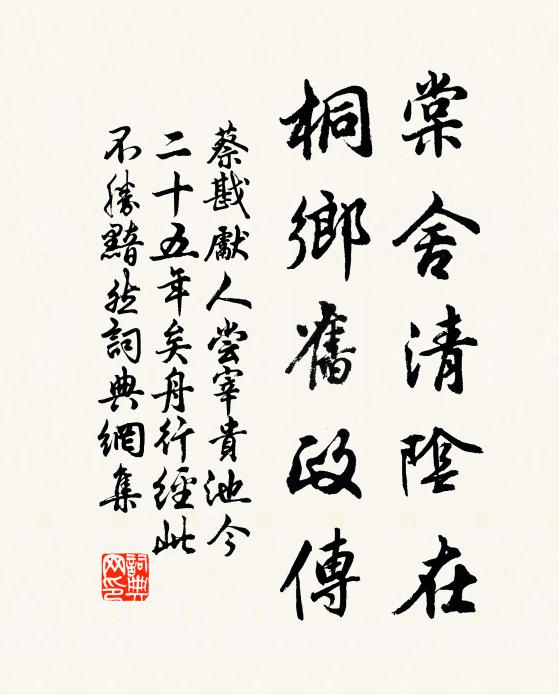 棠舍清陰在
桐鄉舊政傳
蔡戡獻人嘗宰貴池今
二十五年矣舟行經此
不勝黯然詞典網集
詞典
网印